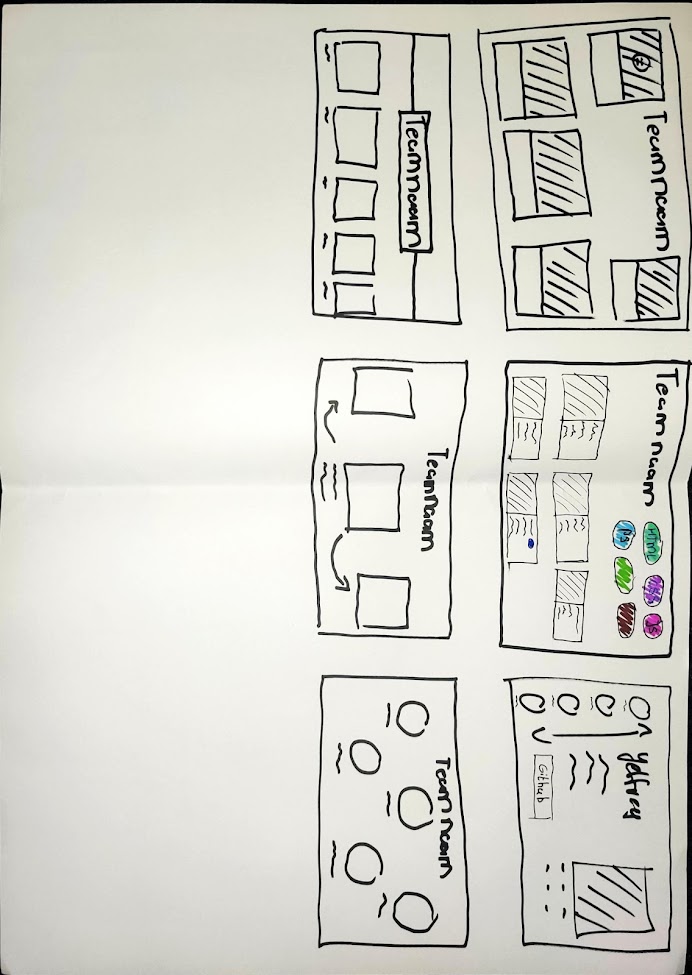 Teamnaam
Teamnaam
HTML
CSS
JS
Yelfrey
Github
Teamnaam
Teamnaam
Teamnaam